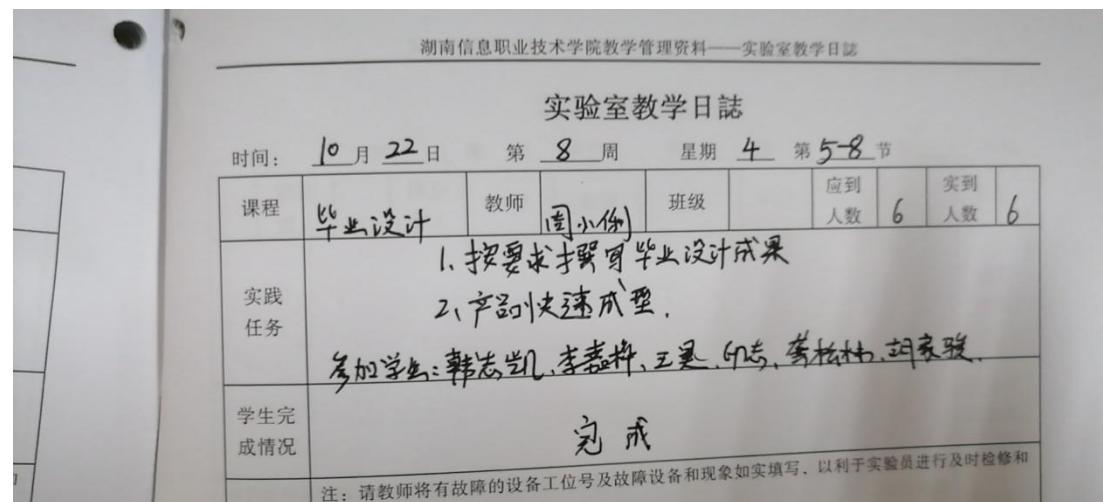 湖南信息职业技术学院教学管理资料——实验室教学日誌
实验室教学日誌
时间: 10 月 22 日 第 8 周 星期 4 第 5-8 节
课程 毕业设计 教师 周小俐 班级 应到人数 6 实到人数 6
实践任务
1、按要求撰写毕业设计成果
2、产品快速成型.
参加学生:韩志凯、李嘉桦、王昊、邝志、龚松林、胡家骏.
学生完成情况 完成
注:请教师将有故障的设备工位号及故障设备和现象如实填写,以利于实验员进行及时检修和